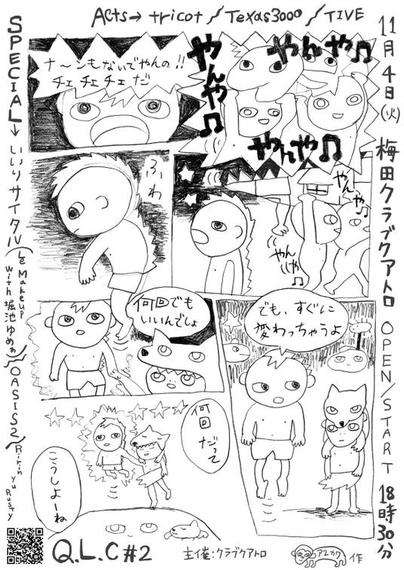 Acts→ tricot/Texas3000/TIVE
11月4日(火) 梅田クラブクアトロ OPEN/START 18時30分
SPECIAL→いいリサイクル(と Makeup with 堀池ゆめぁ)OASIS2(Ririn Yu Rusty)
ナーンもないでやんの!!
チェチェチェだ
やんや♫
やんや♫
やんや♫
やんや♫
ふわ
やんや♫
やんや♫
何回でも
いいんでしょ
でも、すぐに
変わっちゃうよ
何回
だって
こうしよーね
Q.L.C#2
主催:クラブクアトロ
作